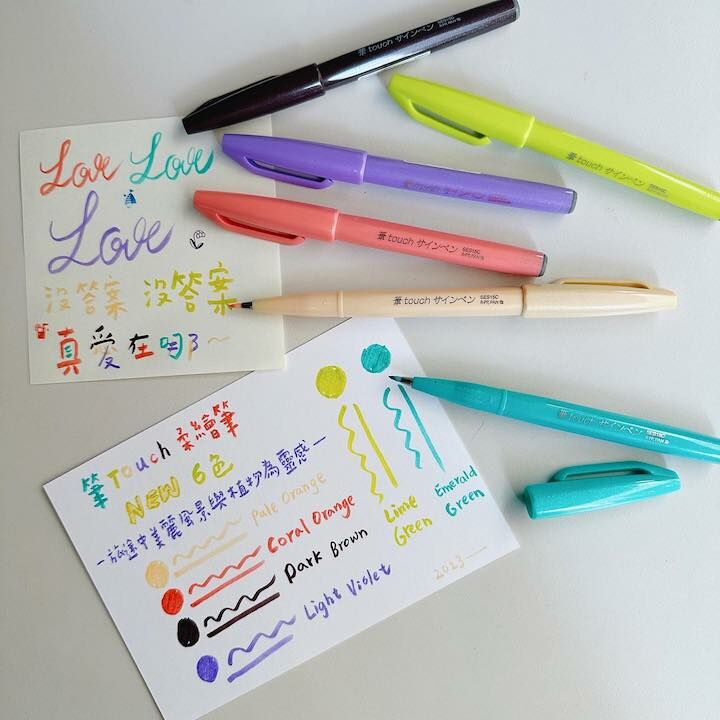 筆touch サインペン
筆touch サインペン SES15C
筆touch サインペン
筆touch サインペン SES15C
筆touch サインペン SES15C
筆touch サインペン
Love Love
Love
没答案 没答案
真愛在哪了~
筆 Touch 柔繪筆
NEW 6色
—旅途中美麗風景與植物為靈感—
Pale Orange
Coral Orange
Dark Brown
Light Violet
Lime
Green
Emerald
Green
2023—